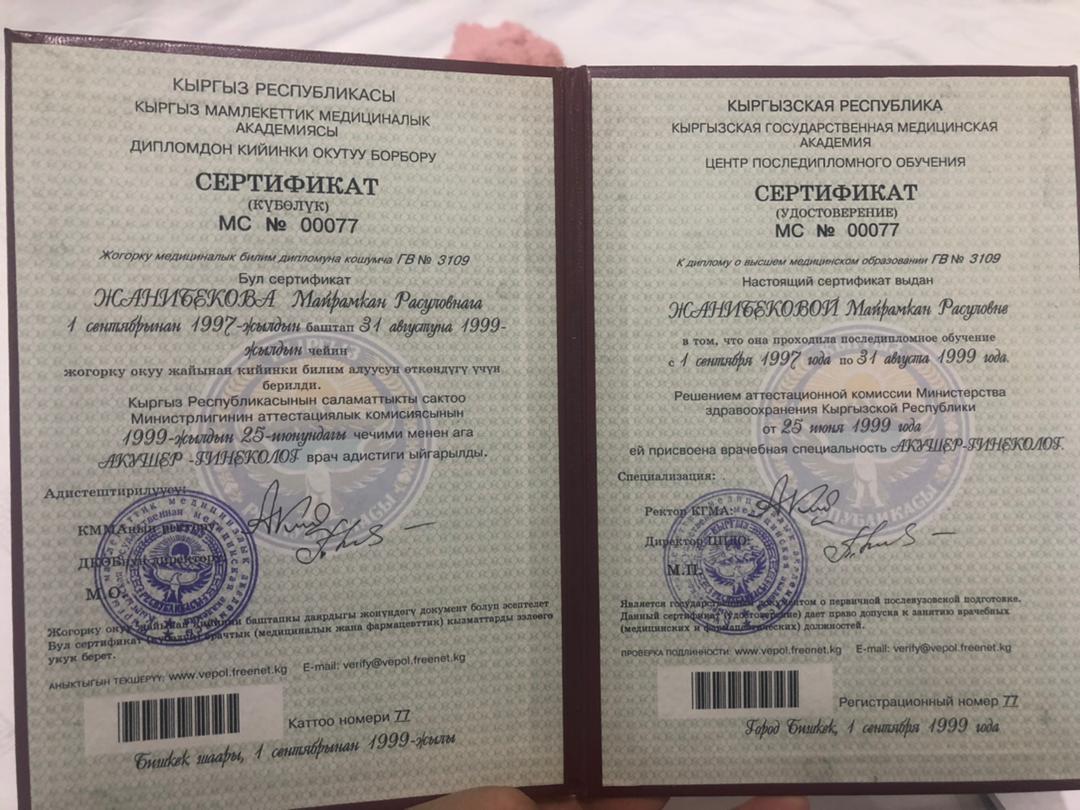 КЫРГЫЗ РЕСПУБЛИКАСЫ
КЫРГЫЗ МАМЛЕКЕТТИК МЕДИЦИНАЛЫК
АКАДЕМИЯСЫ
ДИПЛОМДОН КИЙИНКИ ОКУТУУ БОРБОРУ
СЕРТИФИКАТ
(КҮБӨЛҮК)
МС № 00077
Жогорку медициналык билим дипломуна кошумча ГВ № 3109
Бул сертификат
ЖАНИБЕКОВА Майрамкан Расуловнага
1 сентябрынан 1997-жылдын баштап 31 августуна 1999-
жылдын чейин
жогорку окуу жайынан кийинки билим алуусун өткөндүгү үчүн
берилди.
Кыргыз Республикасынын саламаттыкты сактоо
Министрлигинин аттестациялык комисиясынын
1999-жылдын 25-июнундагы чечими менен ага
АКУШЕР -ГИНЕКОЛОГ врач адистиги ыйгарылды.
Адистештирилүүсү:
КММАнын ректору
ДКОБнун директору
М.О.
Жогорку окуу жайынан кийинки баштапкы даярдыгы жонүндөгү документ болуп эсептелет
Бул сертификат (күбөлүк) врачтык (медициналык жана фармацевттик) кызматтарды ээлөөгө
укук берет.
АНЫКТЫГЫН ТЕКШЕРҮҮ: www.vepol.freenet.kg E-mail: verify@vepol.freenet.kg
Каттоо номери 77
Бишкек шаары, 1 сентябрынан 1999-жылы
КЫРГЫЗСКАЯ РЕСПУБЛИКА
КЫРГЫЗСКАЯ ГОСУДАРСТВЕННАЯ МЕДИЦИНСКАЯ
АКАДЕМИЯ
ЦЕНТР ПОСЛЕДИПЛОМНОГО ОБУЧЕНИЯ
СЕРТИФИКАТ
(УДОСТОВЕРЕНИЕ)
МС № 00077
К диплому о высшем медицинском образовании ГВ № 3109
Настоящий сертификат выдан
ЖАНИБЕКОВОЙ Майрамкан Расуловне
в том, что она проходила последипломное обучение
с 1 сентября 1997 года по 31 августа 1999 года.
Решением аттестационной комиссии Министерства
здравоохранения Кыргызской Республики
от 25 июня 1999 года
ей присвоена врачебная специальность АКУШЕР-ГИНЕКОЛОГ.
Специализация:
Ректор КГМА:
Директор ЦПДО:
М.П.
Является государственным документом о первичной послевузовской подготовке.
Данный сертификат (удостоверение) дает право допуска к занятию врачебных
(медицинских и фармацевтических) должностей.
ПРОВЕРКА ПОДЛИННОСТИ: www.vepol.freenet.kg E-mail: verify@vepol.freenet.kg
Регистрационный номер 77
Город Бишкек, 1 сентября 1999 года